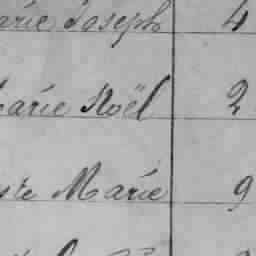 arie Joseph 4
Marie Noël 2
Marie 9